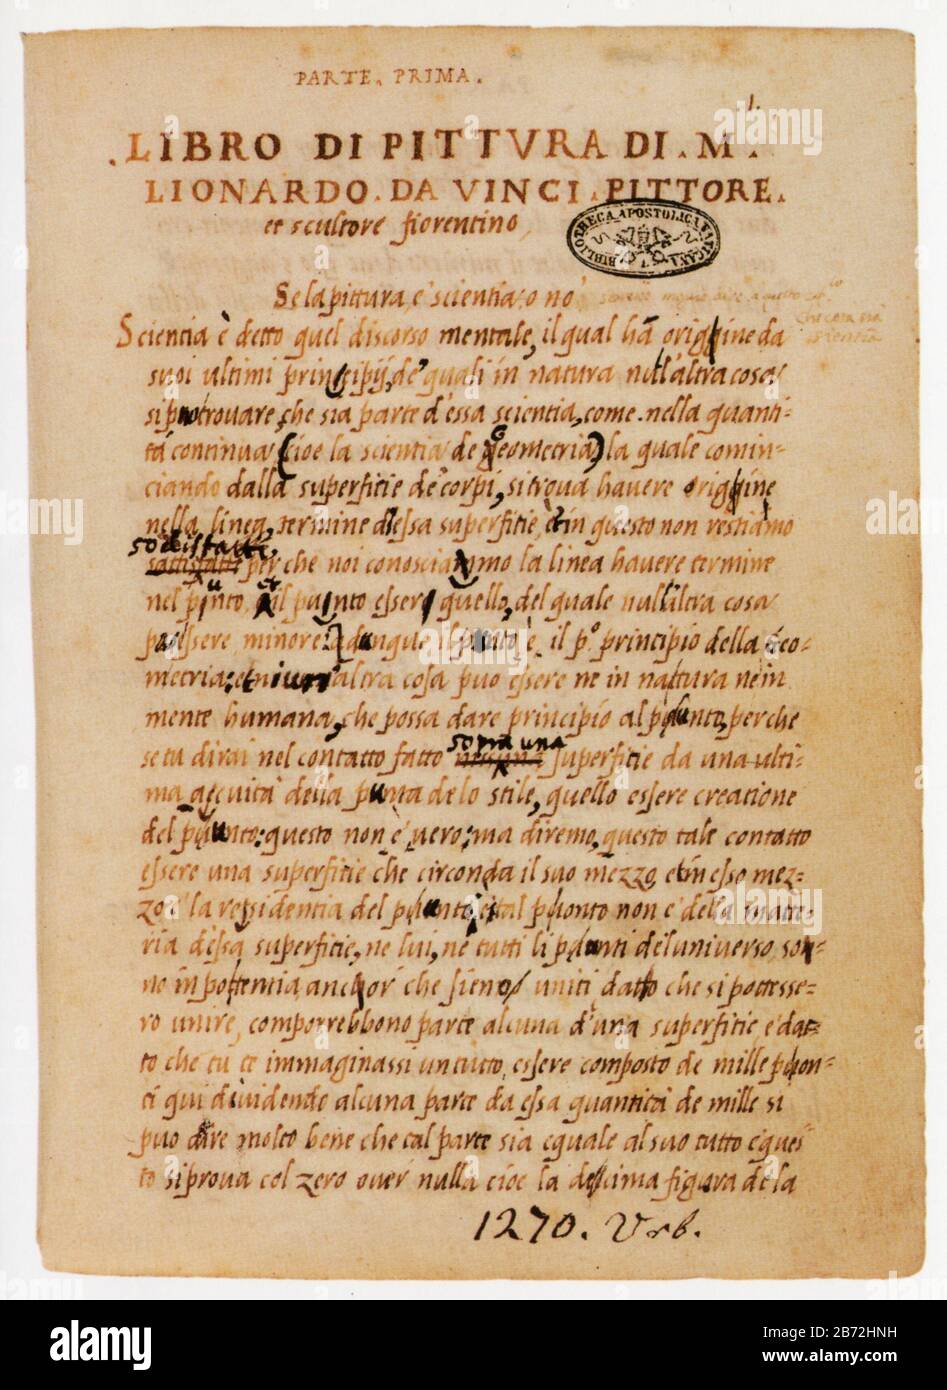 PARTE. PRIMA.
1.
.LIBRO DI PITTVRA DI. M.
LIONARDO. DA VINCI. PITTORE.
et scultore fiorentino,
BIBLIOTHECA APOSTOLICA VATICANA
Se la pittura, e' scientia, o no
che cosa sia
scientia
Scientia è detto quel discorso mentale, il qual ha origine da
suoi ultimi principij, de' quali in natura null'altra cosa
si puo trovare, che sia parte d'essa scientia, come. nella quanti-
tá continua (cioe la scientia de Geometria) la quale comin-
ciando dalla superficie de' corpi, si trova havere origine
nella linea, termine d'essa superficie, et in questo non restiamo
sodisfatti,
satisfatti perche noi conosciamo la linea havere termine
nel punto, et il punto essere quello, del quale null'altra cosa
po essere minore. Adunque il punto è. il p.º principio della Geo-
metria: et niuna altra cosa puo essere ne in natura ne in
mente humana, che possa dare principio al punto, perche
sopra una
se tu dirai nel contatto fatto nessuna superficie da una ulti-
ma accuita della punta de lo stile, quello essere creatione
del punto: questo non e' vero; ma diremo, questo tale contatto
essere una superficie che circonda il suo mezzo, et in esso mez-
zo e' la residentia del punto, et tal punto non e' della mate-
ria d'essa superficie, ne lui, ne tutti li punti del universo, son-
no in potentia, anchor' che sieno uniti, dato che si potesse-
ro unire, comporrebbono parte alcuna d'una superficie. e dat-
to che tu te immaginassi un tutto, essere composto de mille pon-
ti qui dividendo alcuna parte da essa quantita de mille si
puo dire molto bene che tal parte sia eguale al suo tutto e ques
to si prova col zero over nulla cioe la decima figura de la
1270. Urb.
alamy
Image ID: B72HNH
www.alamy.com